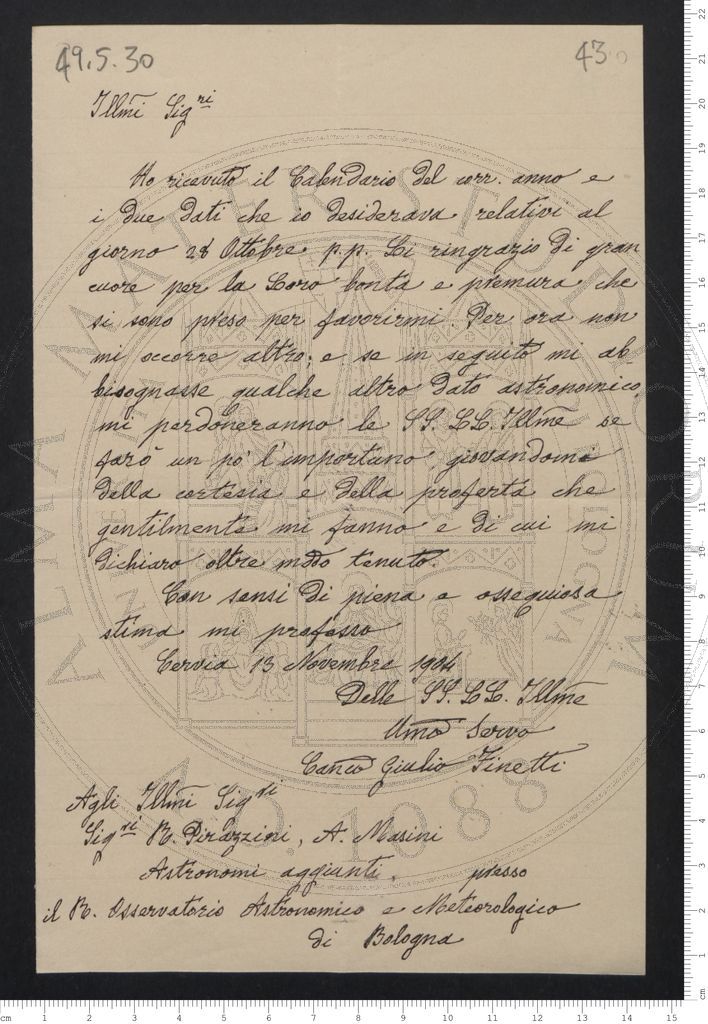 49.5.30
43
Illmi Sigri
Ho ricevuto il Calendario del corr. anno e
i due dati che io desiderava relativi al
giorno 28 Ottobre p.p. Li ringrazio di gran
cuore per la Loro bontà e premura che
si sono preso per favorirmi. Per ora non
mi occorre altro; e se in seguito mi ab-
bisognasse qualche altro dato astronomico,
mi perdoneranno le SS. LL. Illme se
farò un po' l'importuno, giovandomi
della cortesia e della proferta che
gentilmente mi fanno e di cui mi
dichiaro oltre modo tenuto.
Con sensi di piena e ossequiosa
stima mi professo
Cervia 13 Novembre 1904
Delle SS. LL. Illme
Umo Servo
Canco Giulio Finetti
Agli Illmi Sigri
Sigri R. Pirazzini, A. Masini
Astronomi aggiunti, presso
il R. Osservatorio Astronomico e Meteorologico
di Bologna
ALMA MATER STUDIORUM
A.D. 1088
cm 1 2 3 4 5 6 7 8 9 10 11 12 13 14 15
22
21
20
19
18
17
16
15
14
13
12
11
10
9
8
7
6
5
4
3
2
1
cm